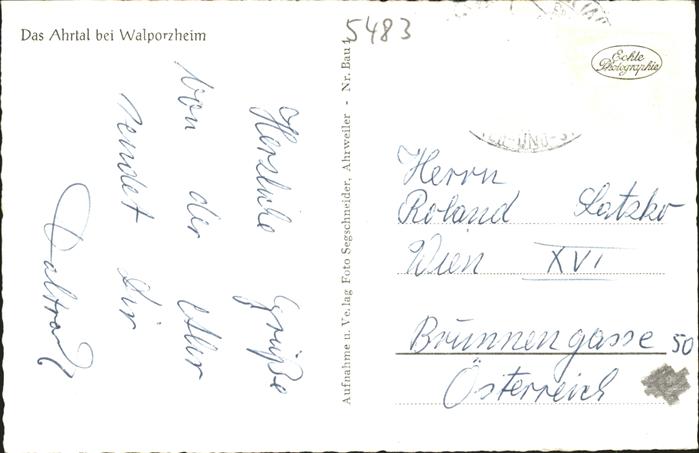 Das Ahrtal bei Walporzheim
5483
Echte
Photographie
Herzliche Grüße
von der Ahr
sendet Dir
Aufnahme u. Verlag Foto Segschneider, Ahrweiler - Nr. Bau 1
Herrn
Roland Latzko
Wien XVI
Brunnengasse 50
Österreich